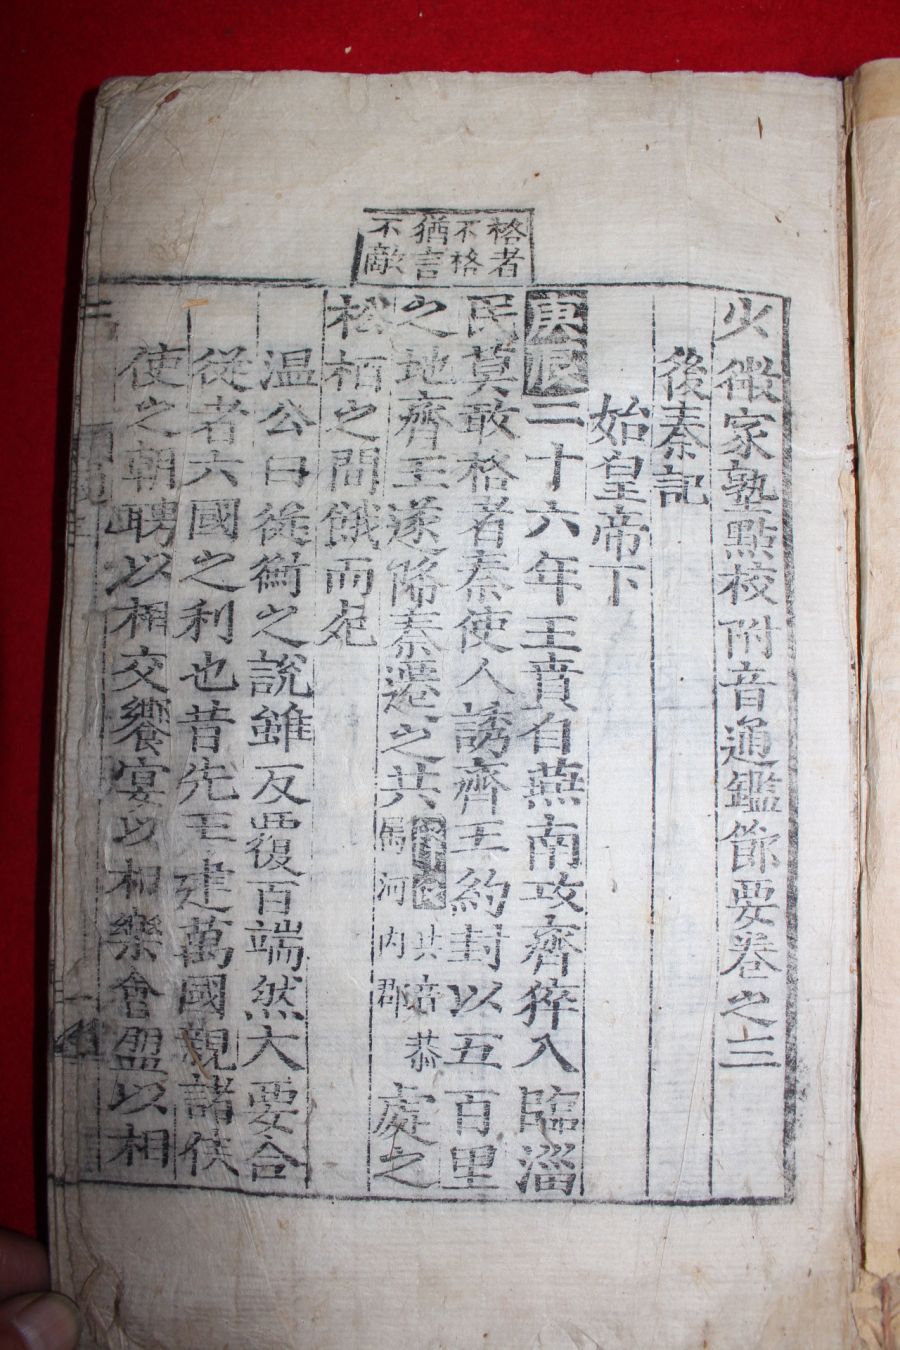 格者
不格
猶言
不敵
少微家塾點校附音通鑑節要卷之三
後秦記
始皇帝下
庚辰二十六年王賁自燕南攻齊猝入臨淄
民莫敢格者秦使人誘齊王約封以五百里
之地齊王遂降秦遷之共
共音恭
屬河内郡
處之
松栢之間餓而死
温公曰從衡之說雖反覆百端然大要合
從者六國之利也昔先王建萬國親諸侯
使之朝聘以相交饗宴以相樂會盟以相